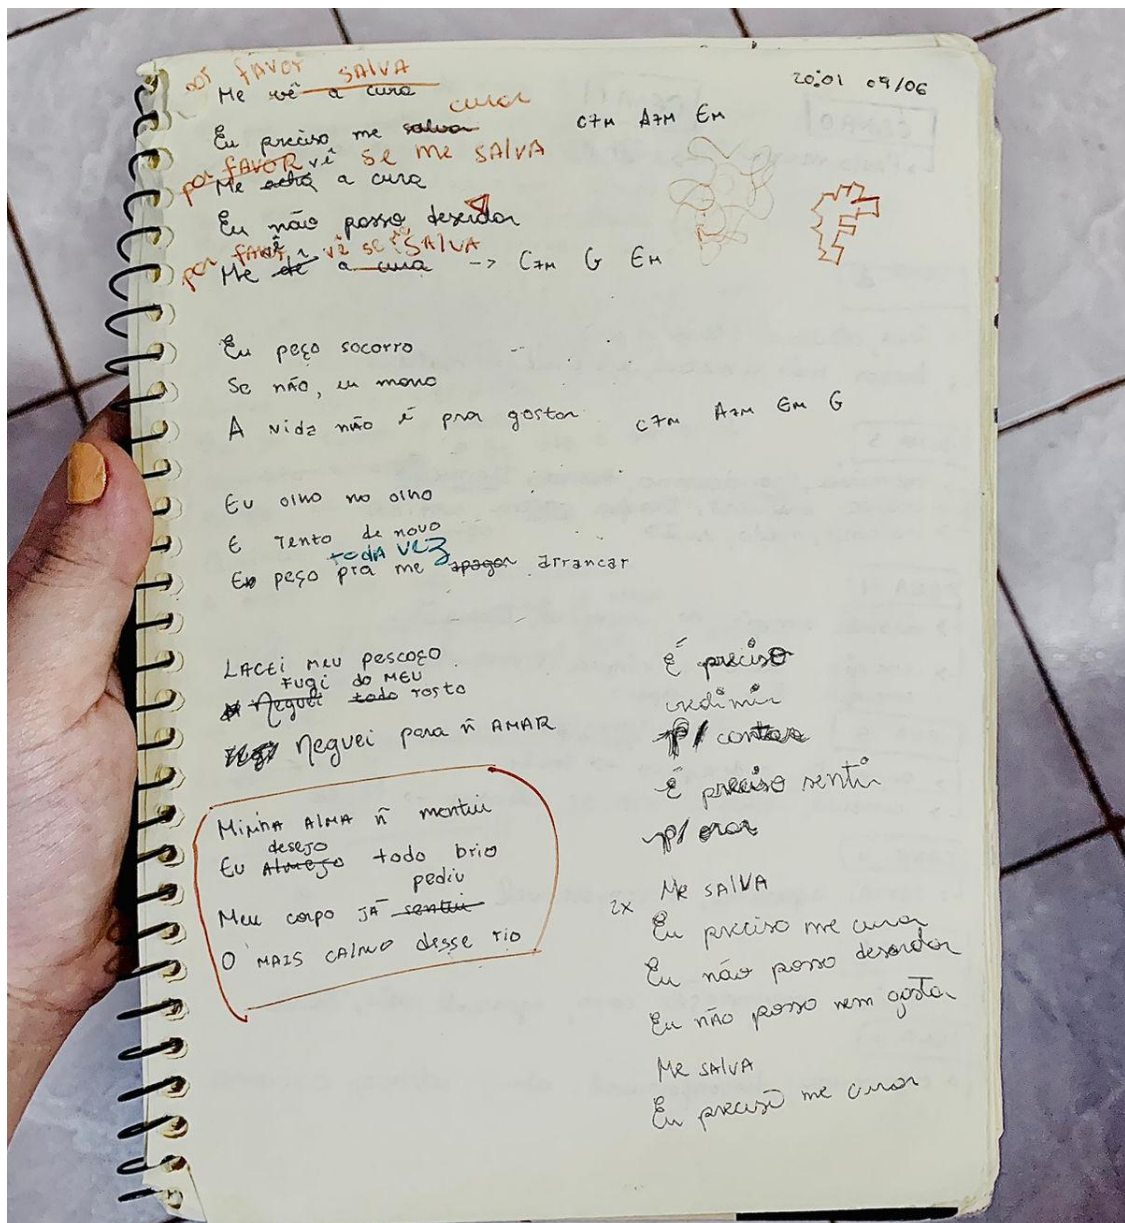 20:01 09/06
por favor SALVA
Me vê a cura
curar
Eu preciso me salvar
C7M A7M Em
por FAVOR vê se me SALVA
Me acha a cura
Eu não posso desandar
por favor vê se SALVA
Me dê a cura -> C7M G Em
Eu peço socorro
Se não, eu morro
A vida não é pra gostar C7M A7M Em G
Eu olho no olho
E tento de novo
toda vez
Eu peço pra me apagar arrancar
Lacei meu pescoço
Fugi do MEU
Neguei todo rosto
Neguei para ñ AMAR
Minha ALMA ñ mentiu
desejo
Eu Almejo todo brio
pediu
Meu corpo JÁ sentiu
O MAIS CALMO desse rio
É preciso
redimir
p/ contar
É preciso sentir
p/ orar
2x Me SALVA
Eu preciso me curar
Eu não posso desandar
Eu não posso nem gostar
Me SALVA
Eu preciso me curar